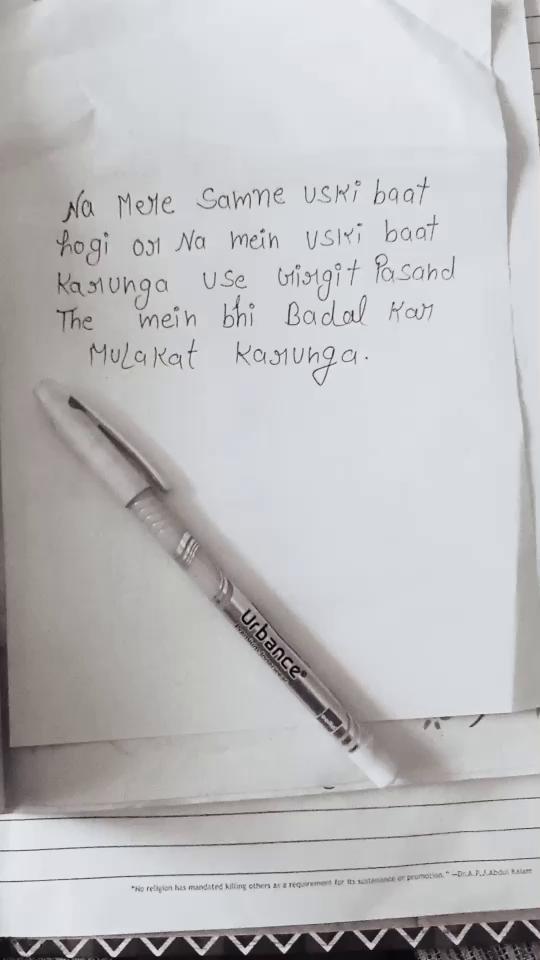 Na Mere Samne uski baat
hogi or Na mein uski baat
Karunga use Girgit Pasand
The mein bhi Badal Kar
Mulakat Karunga.
Urbance
"No religion has mandated killing others as a requirement for its sustenance or promotion." —Dr.A.P.J.Abdul Kalam